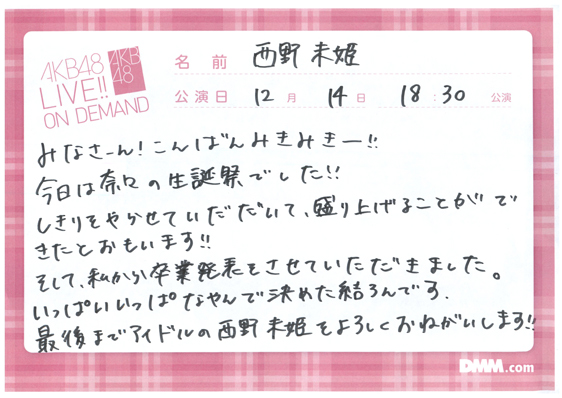 AKB48
LIVE!!
ON DEMAND
AKB
48
名前 西野未姫
公演日 12月 14日 18:30 公演
みなさーん！こんばんみきみきー!!
今日は奈々の生誕祭でした!!
しきりをやかせていだだいて、盛り上げることができ
きたとおもいます!!
そして、私から卒業発表をさせていただきました。
いっぱいいっぱなやんで決めた結ろんです.
最後までアイドルの西野未姫をよろしくおねがいします!!
DMM.com